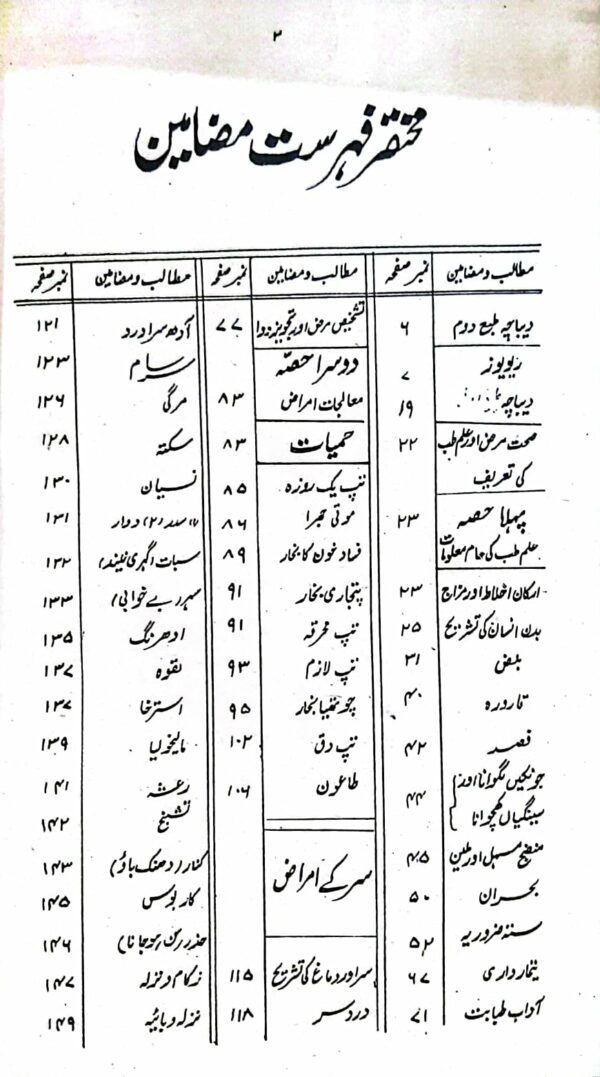 ۲
مختصر فہرست مضامین
مطالب و مضامین نمبر صفحہ
دیباچہ طبع دوم ۶
ریویوز ۷
دیباچہ ۱۹
صحت مرض اور علم طب ۲۲
کی تعریف
پہلا حصہ ۲۳
علم طب کی عام معلومات
ارکان اخلاط اور مزاج ۲۳
بدن انسان کی تشریح ۲۵
نبض ۳۱
قارورہ ۴۰
فصد ۴۲
جونکیں لگوانا اور ۴۴
سینگیاں کھچوانا
منضج مسہل اور ملین ۴۵
بحران ۵۰
ستہ ضروریہ ۵۲
تیمارداری ۶۷
آداب طبابت ۷۱
مطالب و مضامین نمبر صفحہ
تشخیص مرض اور تجویز دوا ۷۷
دوسرا حصہ
معالجات امراض ۸۳
حمیات ۸۳
تپ یک روزہ ۸۵
موتی جھرا ۸۶
فساد خون کا بخار ۸۹
تجاری بخار ۹۱
تپ محرقہ ۹۱
تپ لازم ۹۳
چوتھیا بخار ۹۵
تپ دق ۱۰۲
طاعون ۱۰۶
سر کے امراض
سر اور دماغ کی تشریح ۱۱۵
درد سر ۱۱۸
مطالب و مضامین نمبر صفحہ
آدھ سرا درد ۱۲۱
سرسام ۱۲۳
مرگی ۱۲۶
سکتہ ۱۲۸
نسیان ۱۳۰
(۱) سدر (۲) دوار ۱۳۱
سبات (گہری نیند) ۱۳۲
سہر (بے خوابی) ۱۳۳
ادھرنگ ۱۳۵
لقوہ ۱۳۷
استرخا ۱۳۷
مالیخولیا ۱۳۹
رعشہ ۱۴۱
تشنج ۱۴۲
کزاز (دھنک باؤ) ۱۴۳
کابوس ۱۴۵
خدر (سن ہو جانا) ۱۴۶
زکام و نزلہ ۱۴۷
نزلہ وبائیہ ۱۴۹